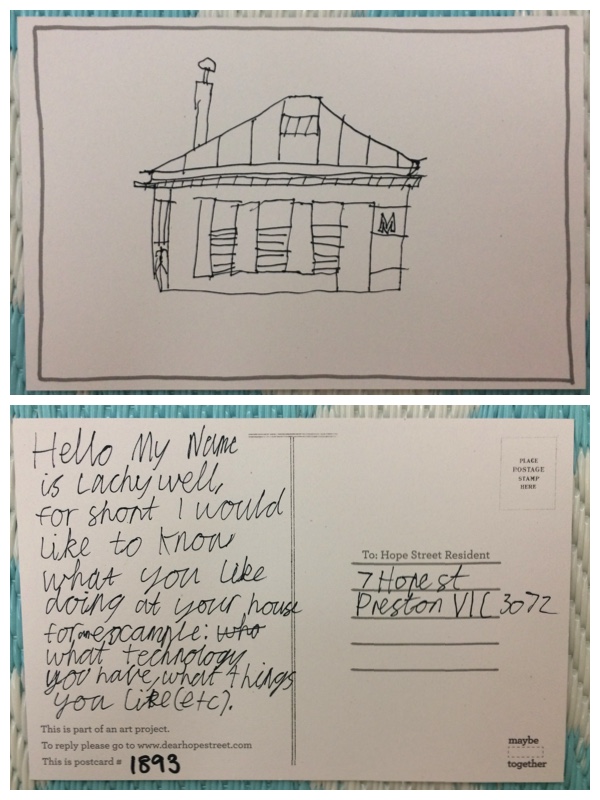 M
Hello My Name
is Lachy well,
for short I would
like to know
what you like
doing at your house
for an example: who
what technology
you have, what things
you like (etc).
This is part of an art project.
To reply please go to www.dearhopestreet.com
This is postcard # 1893
PLACE
POSTAGE
STAMP
HERE
To: Hope Street Resident
7 Hope st
Preston VIC 3072
maybe
together